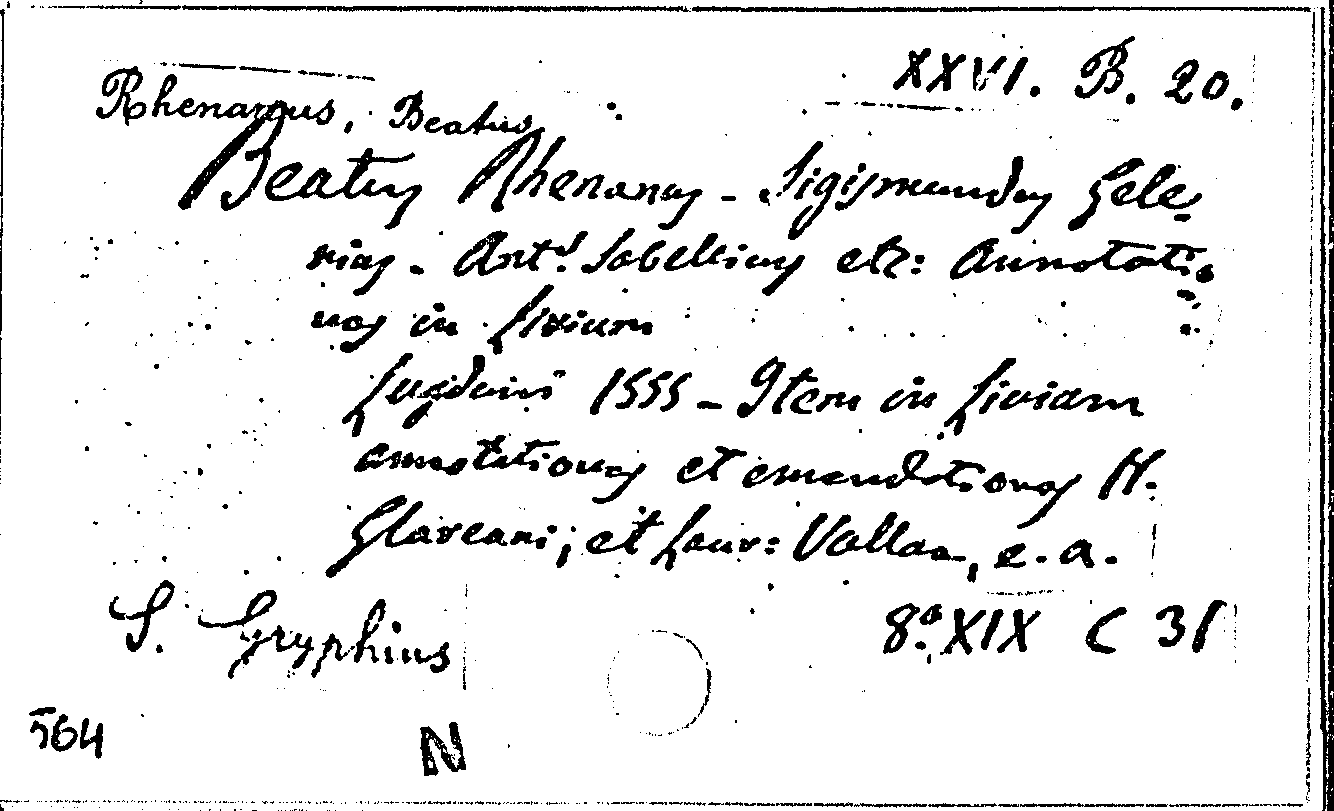 XXVI. B. 20.
Rhenanus, Beatus
Beatus Rhenanus - Sigismundus Gele-
nius - Ant. Sabellicus etc: Annotatio-
nes in Livium
Lugduni 1555 - Item in Livium
annotationes et emendationes H.
Glareani; et Laur: Vallae, e. a.
S. Gryphius
8º XIX C 31
564
N